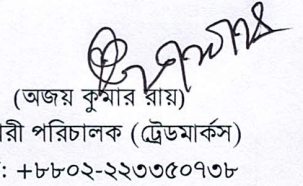 (অজয় কুমার রায়)
রী পরিচালক (ট্রেডমার্কস)
: +৮৮০২-২২৩৩৫০৭৩৮